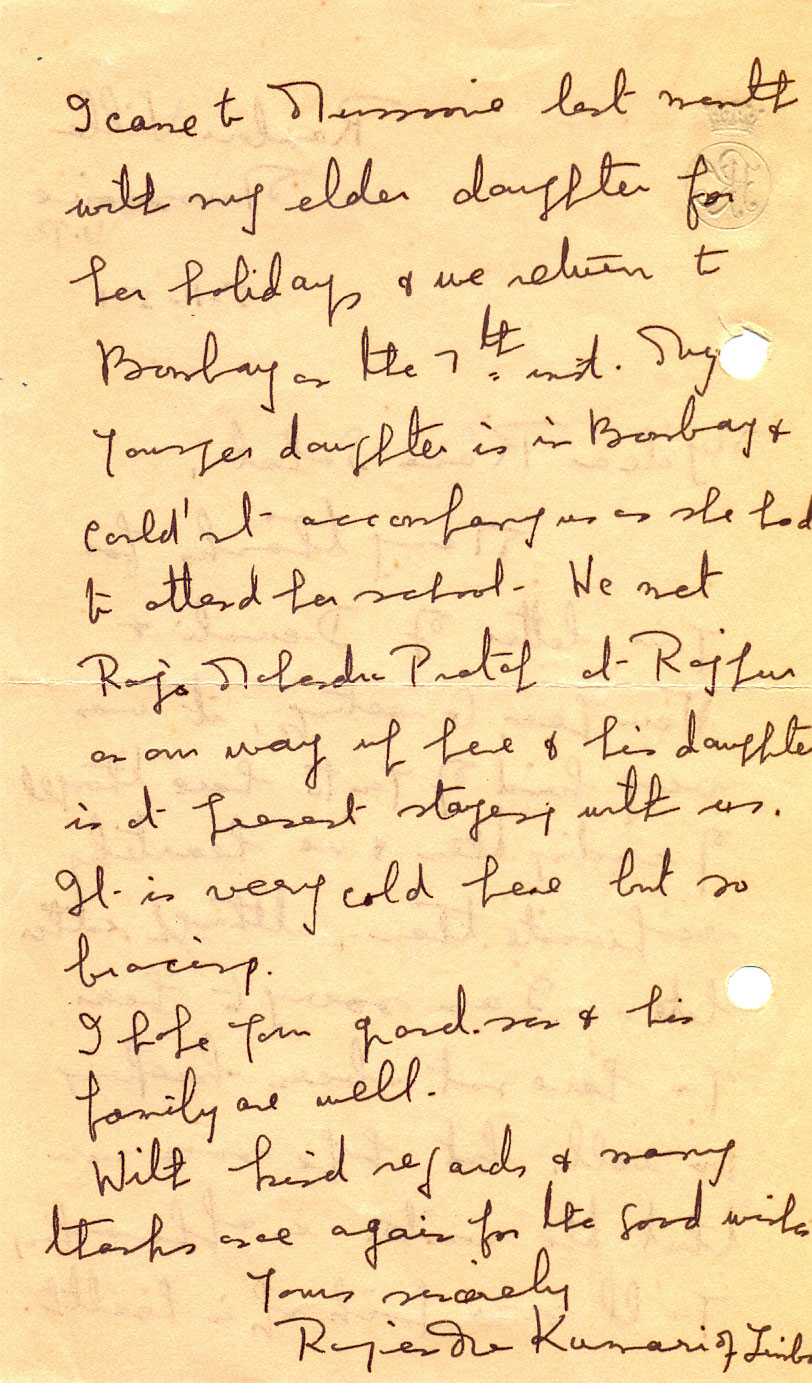 I came to Mussoorie last month
with my elder daughter for
her holidays & we return to
Bombay on the 7th inst. My
younger daughter is in Bombay &
could'nt accompany us as she had
to attend her school. We met
Raja Mahendra Pratap at Rajpur
on our way up here & his daughter
is at present staying with us.
It is very cold here but so
bracing.
I hope your grand-son & his
family are well.
With kind regards & many
thanks once again for the good wishes
Yours sincerely
Rajendra Kumari of Limb